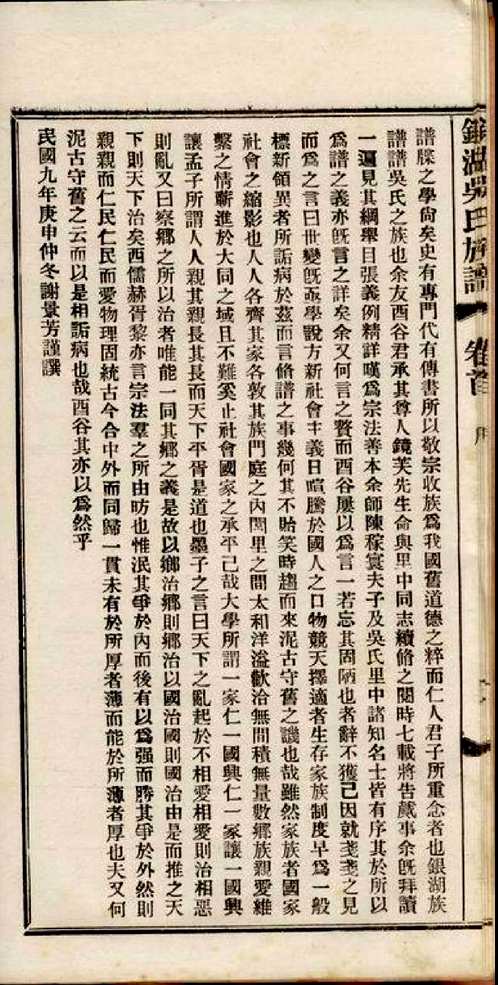 銀湖吳氏族譜 卷首 序
譜牒之學尚矣史有專門代有傳書所以敬宗收族為我國舊道德之粹而仁人君子所重念者也銀湖族
譜譜吳氏之族也余友酉谷君承其尊人鏡芙先生命與里中同志續脩之閱時七載將告蕆事余旣拜讀
一遍見其綱舉目張義例精詳嘆為宗法善本余師陳稼寰夫子及吳氏里中諸知名士皆有序其於所以
為譜之義亦旣言之詳矣余又何言之贅而酉谷屢以為言一若忘其固陋也者辭不獲已因就戔戔之見
而為之言曰世變旣亟學說方新社會主義日喧騰於國人之口物競天擇適者生存家族制度早為一般
標新領異者所詬病於茲而言脩譜之事幾何其不貽笑時趨而來泥古守舊之譏也哉雖然家族者國家
社會之縮影也人人各齊其家各敦其族門庭之內閭里之間太和洋溢歡洽無間積無量數鄉族親愛維
繫之情蘄進於大同之域且不難奚止社會國家之承平已哉大學所謂一家仁一國興仁一家讓一國興
讓孟子所謂人人親其親長其長而天下平胥是道也墨子之言曰天下之亂起於不相愛相愛則治相惡
則亂又曰察鄉之所以治者唯能一同其鄉之義是故以鄉治鄉則鄉治以國治國則國治由是而推之天
下則天下治矣西儒赫胥黎亦言宗法羣之所由昉也惟泯其爭於內而後有以為强而勝其爭於外然則
親親而仁民仁民而愛物理固統古今合中外而同歸一貫未有於所厚者薄而能於所薄者厚也夫又何
泥古守舊之云而以是相詬病也哉酉谷其亦以為然乎
民國九年庚申仲冬謝景芳謹譔